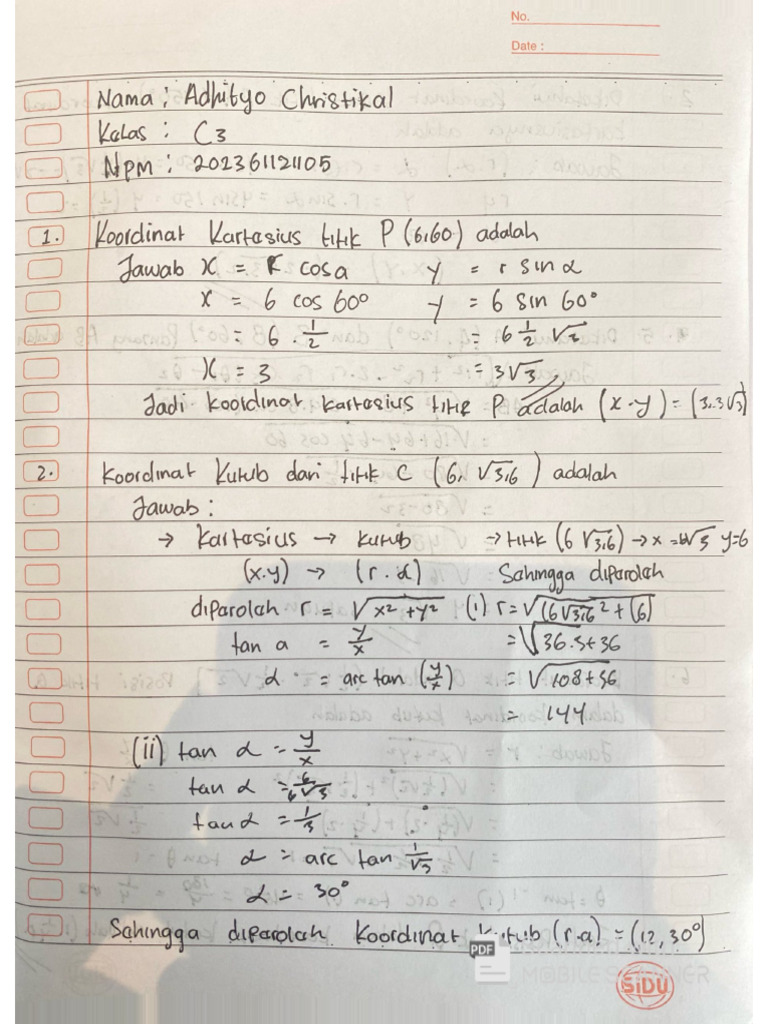 No.
Date :
Nama : Adhityo Christikal
Kelas : C3
Npm : 202361121105
1. Koordinat Kartesius titik P (6,60) adalah
Jawab x = r cos a y = r sin α
x = 6 cos 60° y = 6 sin 60°
= 6 . 1/2 = 6 1/2 √2
x = 3 = 3√3
Jadi koordinat kartesius titik P adalah (x.y) = (3.3√3)
2. Koordinat Kutub dari titik C (6, √3,6) adalah
Jawab :
→ Kartesius → kutub → titik (6 √3,6) → x = 6√3 y=6
(x.y) → (r.α) Sehingga diperoleh
diperoleh r = √x² + y² (i) r = √(6√3,6² + (6)
tan a = y/x = √36.3+36
α = arc tan (y/x) = √108+36
= 144
(ii) tan α = y/x
tan α = 6/6√3
tan α = 1/3
α = arc tan 1/√3
α = 30°
Sehingga diperoleh koordinat kutub (r.a) = (12, 30°)
PDF
MOBILE SCANNER
SiDU